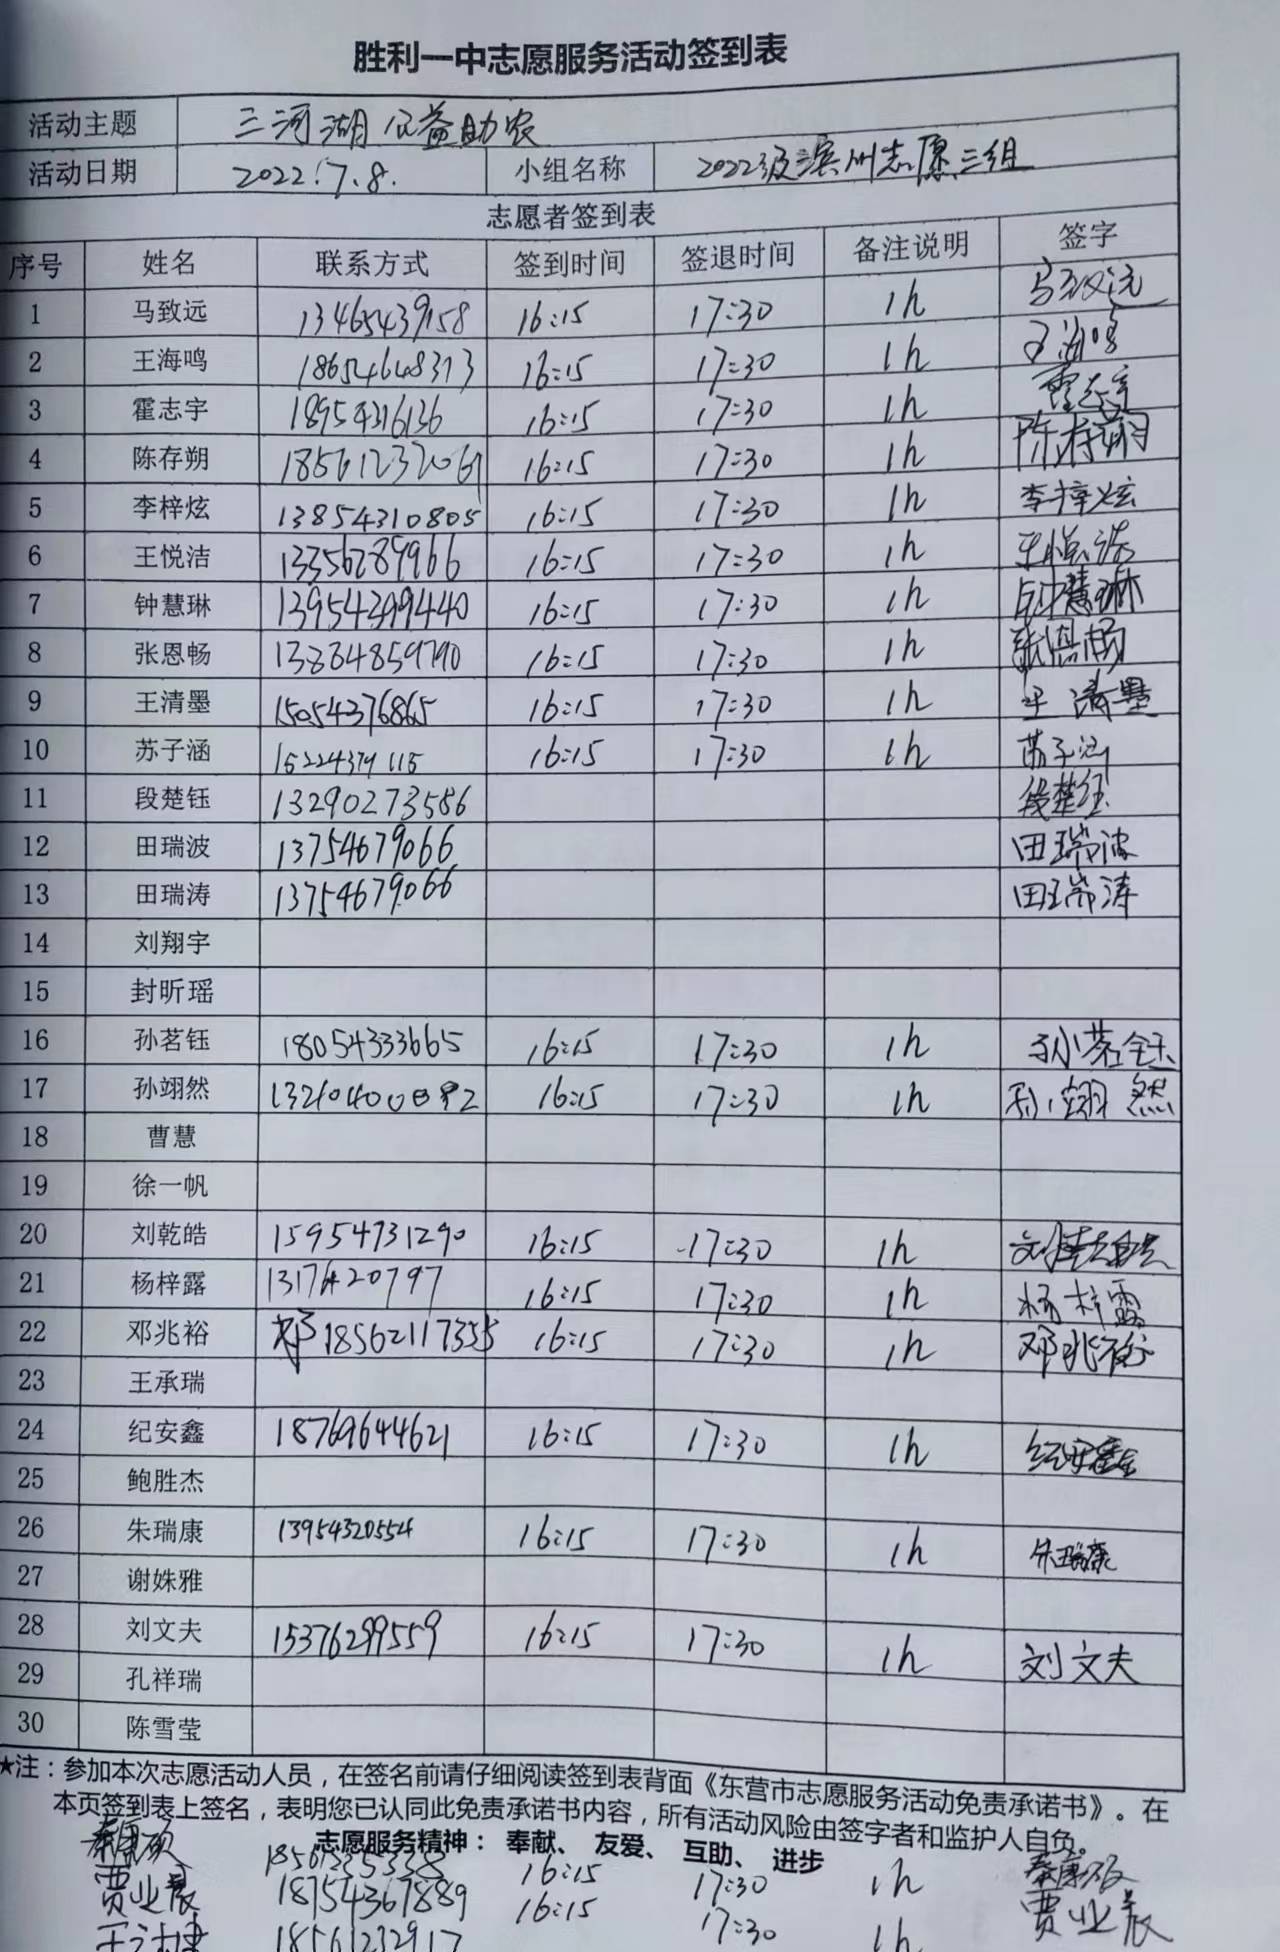 胜利一中志愿服务活动签到表
活动主题 三河湖公益助农
活动日期 2022.7.8. 小组名称 2022级滨州志愿三组
志愿者签到表
序号 姓名 联系方式 签到时间 签退时间 备注说明 签字
1 马致远 13465439158 16:15 17:30 1h 马致远
2 王海鸣 18654648373 16:15 17:30 1h 王海鸣
3 霍志宇 18954316136 16:15 17:30 1h 霍志宇
4 陈存朔 18561232061 16:15 17:30 1h 陈存朔
5 李梓炫 13854310805 16:15 17:30 1h 李梓炫
6 王悦洁 13356289966 16:15 17:30 1h 王悦洁
7 钟慧琳 13954299440 16:15 17:30 1h 钟慧琳
8 张恩畅 13884859790 16:15 17:30 1h 张恩畅
9 王清墨 15054376865 16:15 17:30 1h 王清墨
10 苏子涵 16:15 17:30 1h 苏子涵
11 段楚钰 13290273586 段楚钰
12 田瑞波 13754679066 田瑞波
13 田瑞涛 13754679066 田瑞涛
14 刘翔宇
15 封昕瑶
16 孙茗钰 18054333665 16:15 17:30 1h 孙茗钰
17 孙翊然 16:15 17:30 1h 孙翊然
18 曹慧
19 徐一帆
20 刘乾皓 15954731290 16:15 17:30 1h 刘乾皓
21 杨梓露 16:15 17:30 1h 杨梓露
22 邓兆裕 18562117355 16:15 17:30 1h 邓兆裕
23 王承瑞
24 纪安鑫 18769644621 16:15 17:30 1h 纪安鑫
25 鲍胜杰
26 朱瑞康 13954320554 16:15 17:30 1h 朱瑞康
27 谢姝雅
28 刘文夫 15376299559 16:15 17:30 1h 刘文夫
29 孔祥瑞
30 陈雪莹
★注：参加本次志愿活动人员，在签名前请仔细阅读签到表背面《东营市志愿服务活动免责承诺书》。在
本页签到表上签名，表明您已认同此免责承诺书内容，所有活动风险由签字者和监护人自负。
志愿服务精神： 奉献、 友爱、 互助、 进步
16:15 17:30 1h
贾业晨 18754367889 16:15 17:30 1h 贾业晨
18561232917 1h